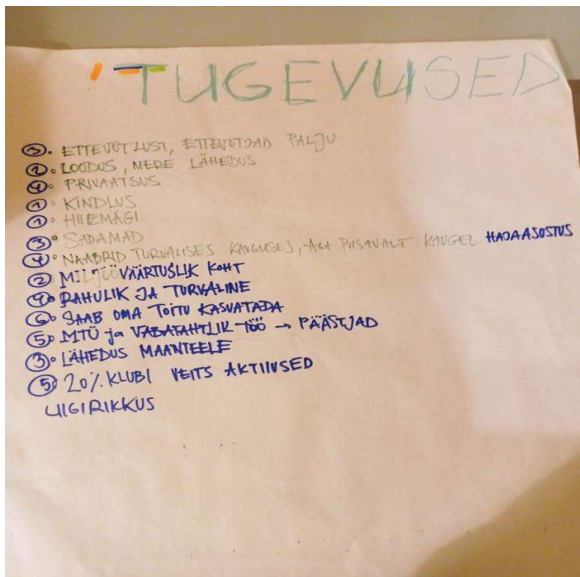 TUGEVUSED
③. ETTEVÕTLUST, ETTEVÕTJAD PALJU
②. LOODUS, MERE LÄHEDUS
④. PRIVAATSUS
①. KINDLUS
①. HIIEMÄGI
③. SADAMAD
④. NAABRID TURVALISES KAUGUSES, AGA PIISAVALT KAUGEL HAJAASUSTUS
② MILJÖÖVÄÄRTUSLIK KOHT
④. RAHULIK JA TURVALINE
⑥. SAAB OMA TOITU KASVATADA
⑤. MTÜ ja VABATAHTLIK TÖÖ → PÄÄSTJAD
③. LÄHEDUS MAANTEELE
⑤. 20% KLUBI VEITS AKTIIVSED
LIIGIRIKKUS